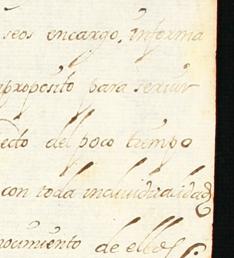 seos encargo, informa
aproposito para servir
ecto del poco tiempo
con toda individualidad
nocimiento de ellos